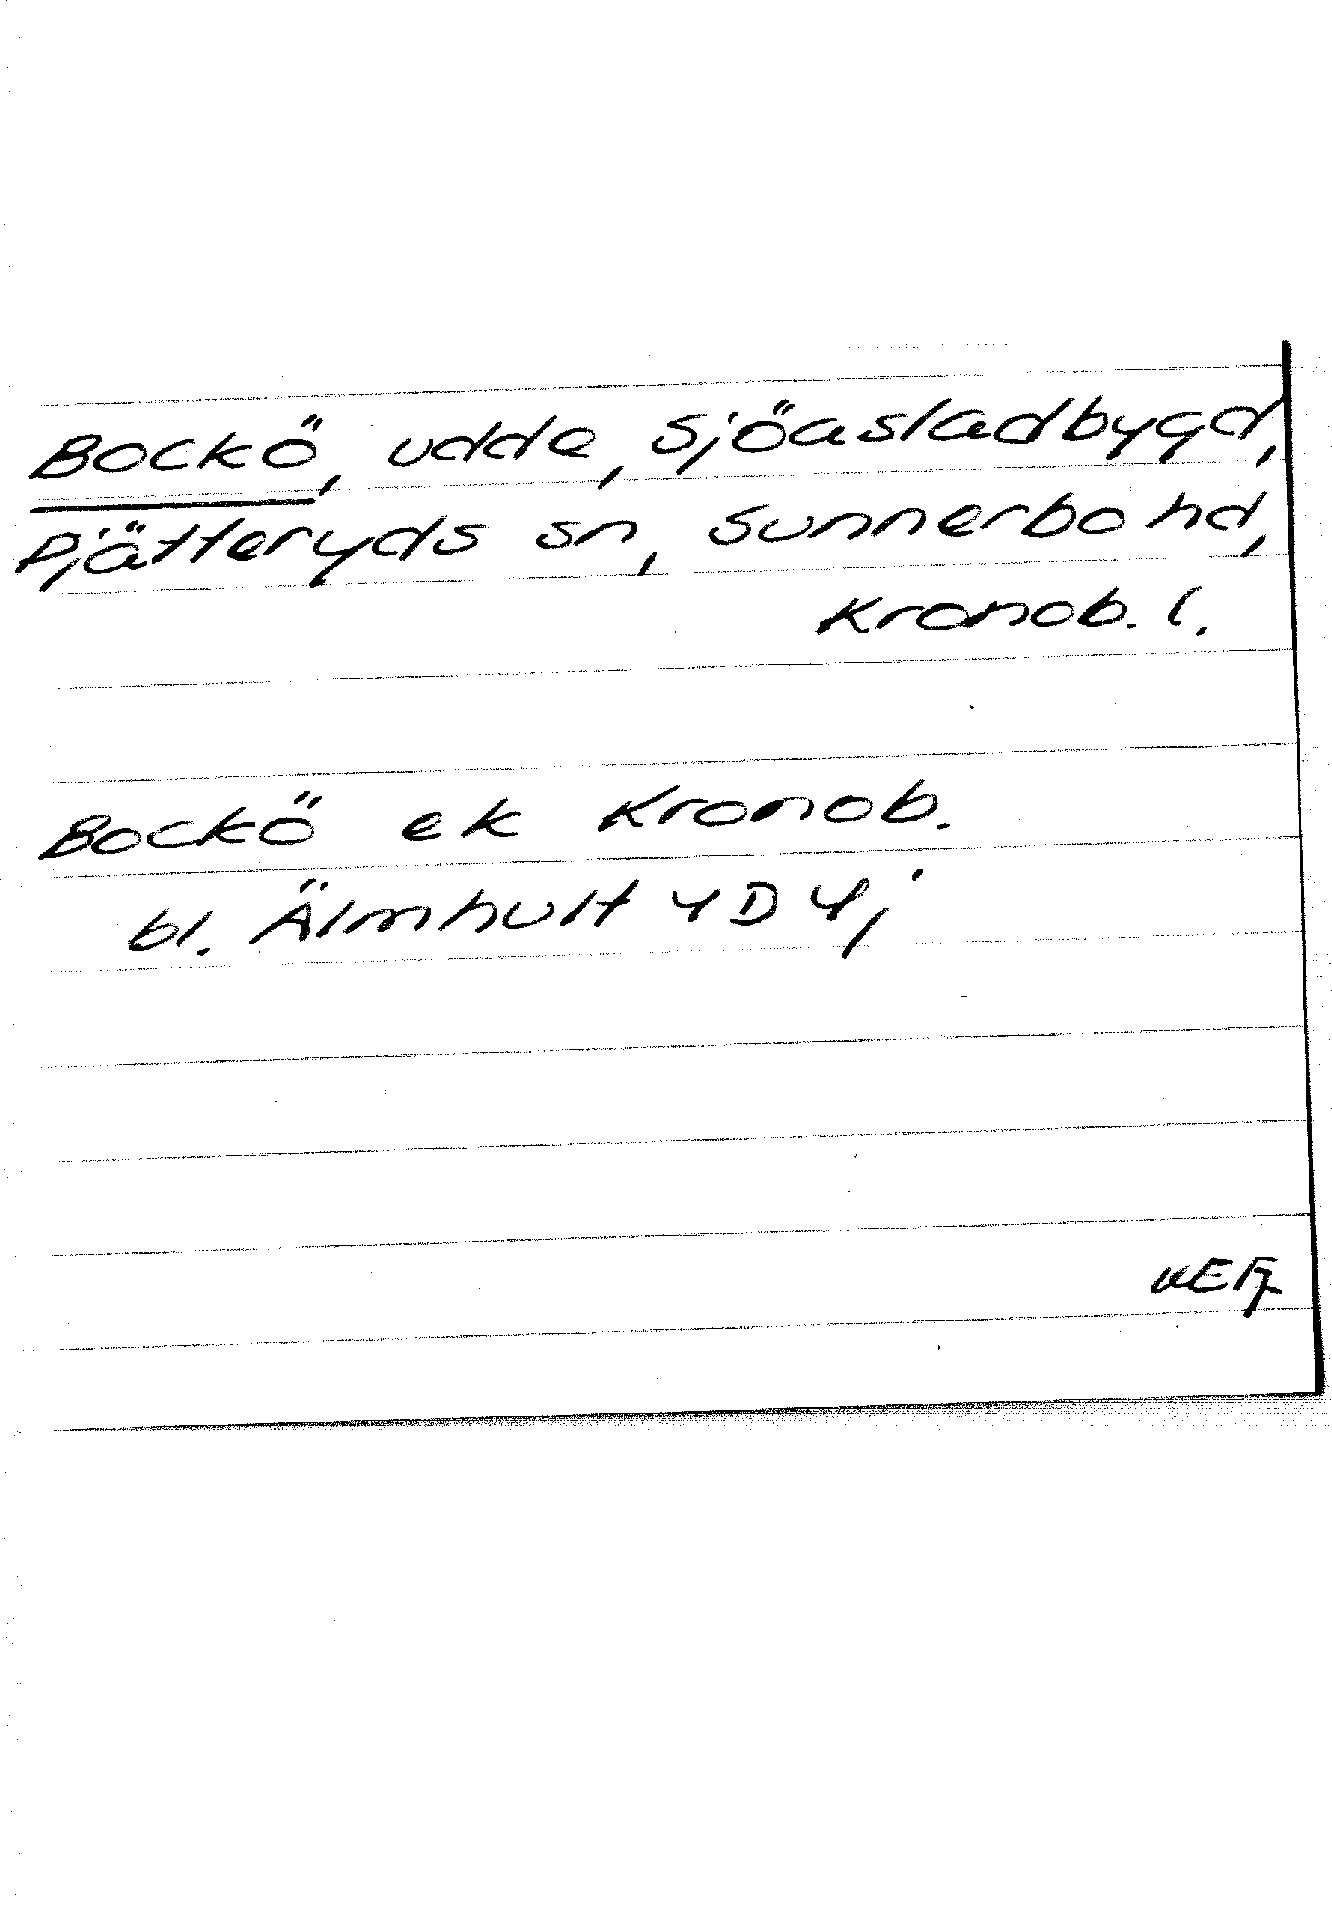 Bockö, udde, Sjöasladbygd,
Pjätteryds sn, Sunnerbo hd,
Kronob. l.
Bockö ek Kronob.
bl. Älmhult 4D4j